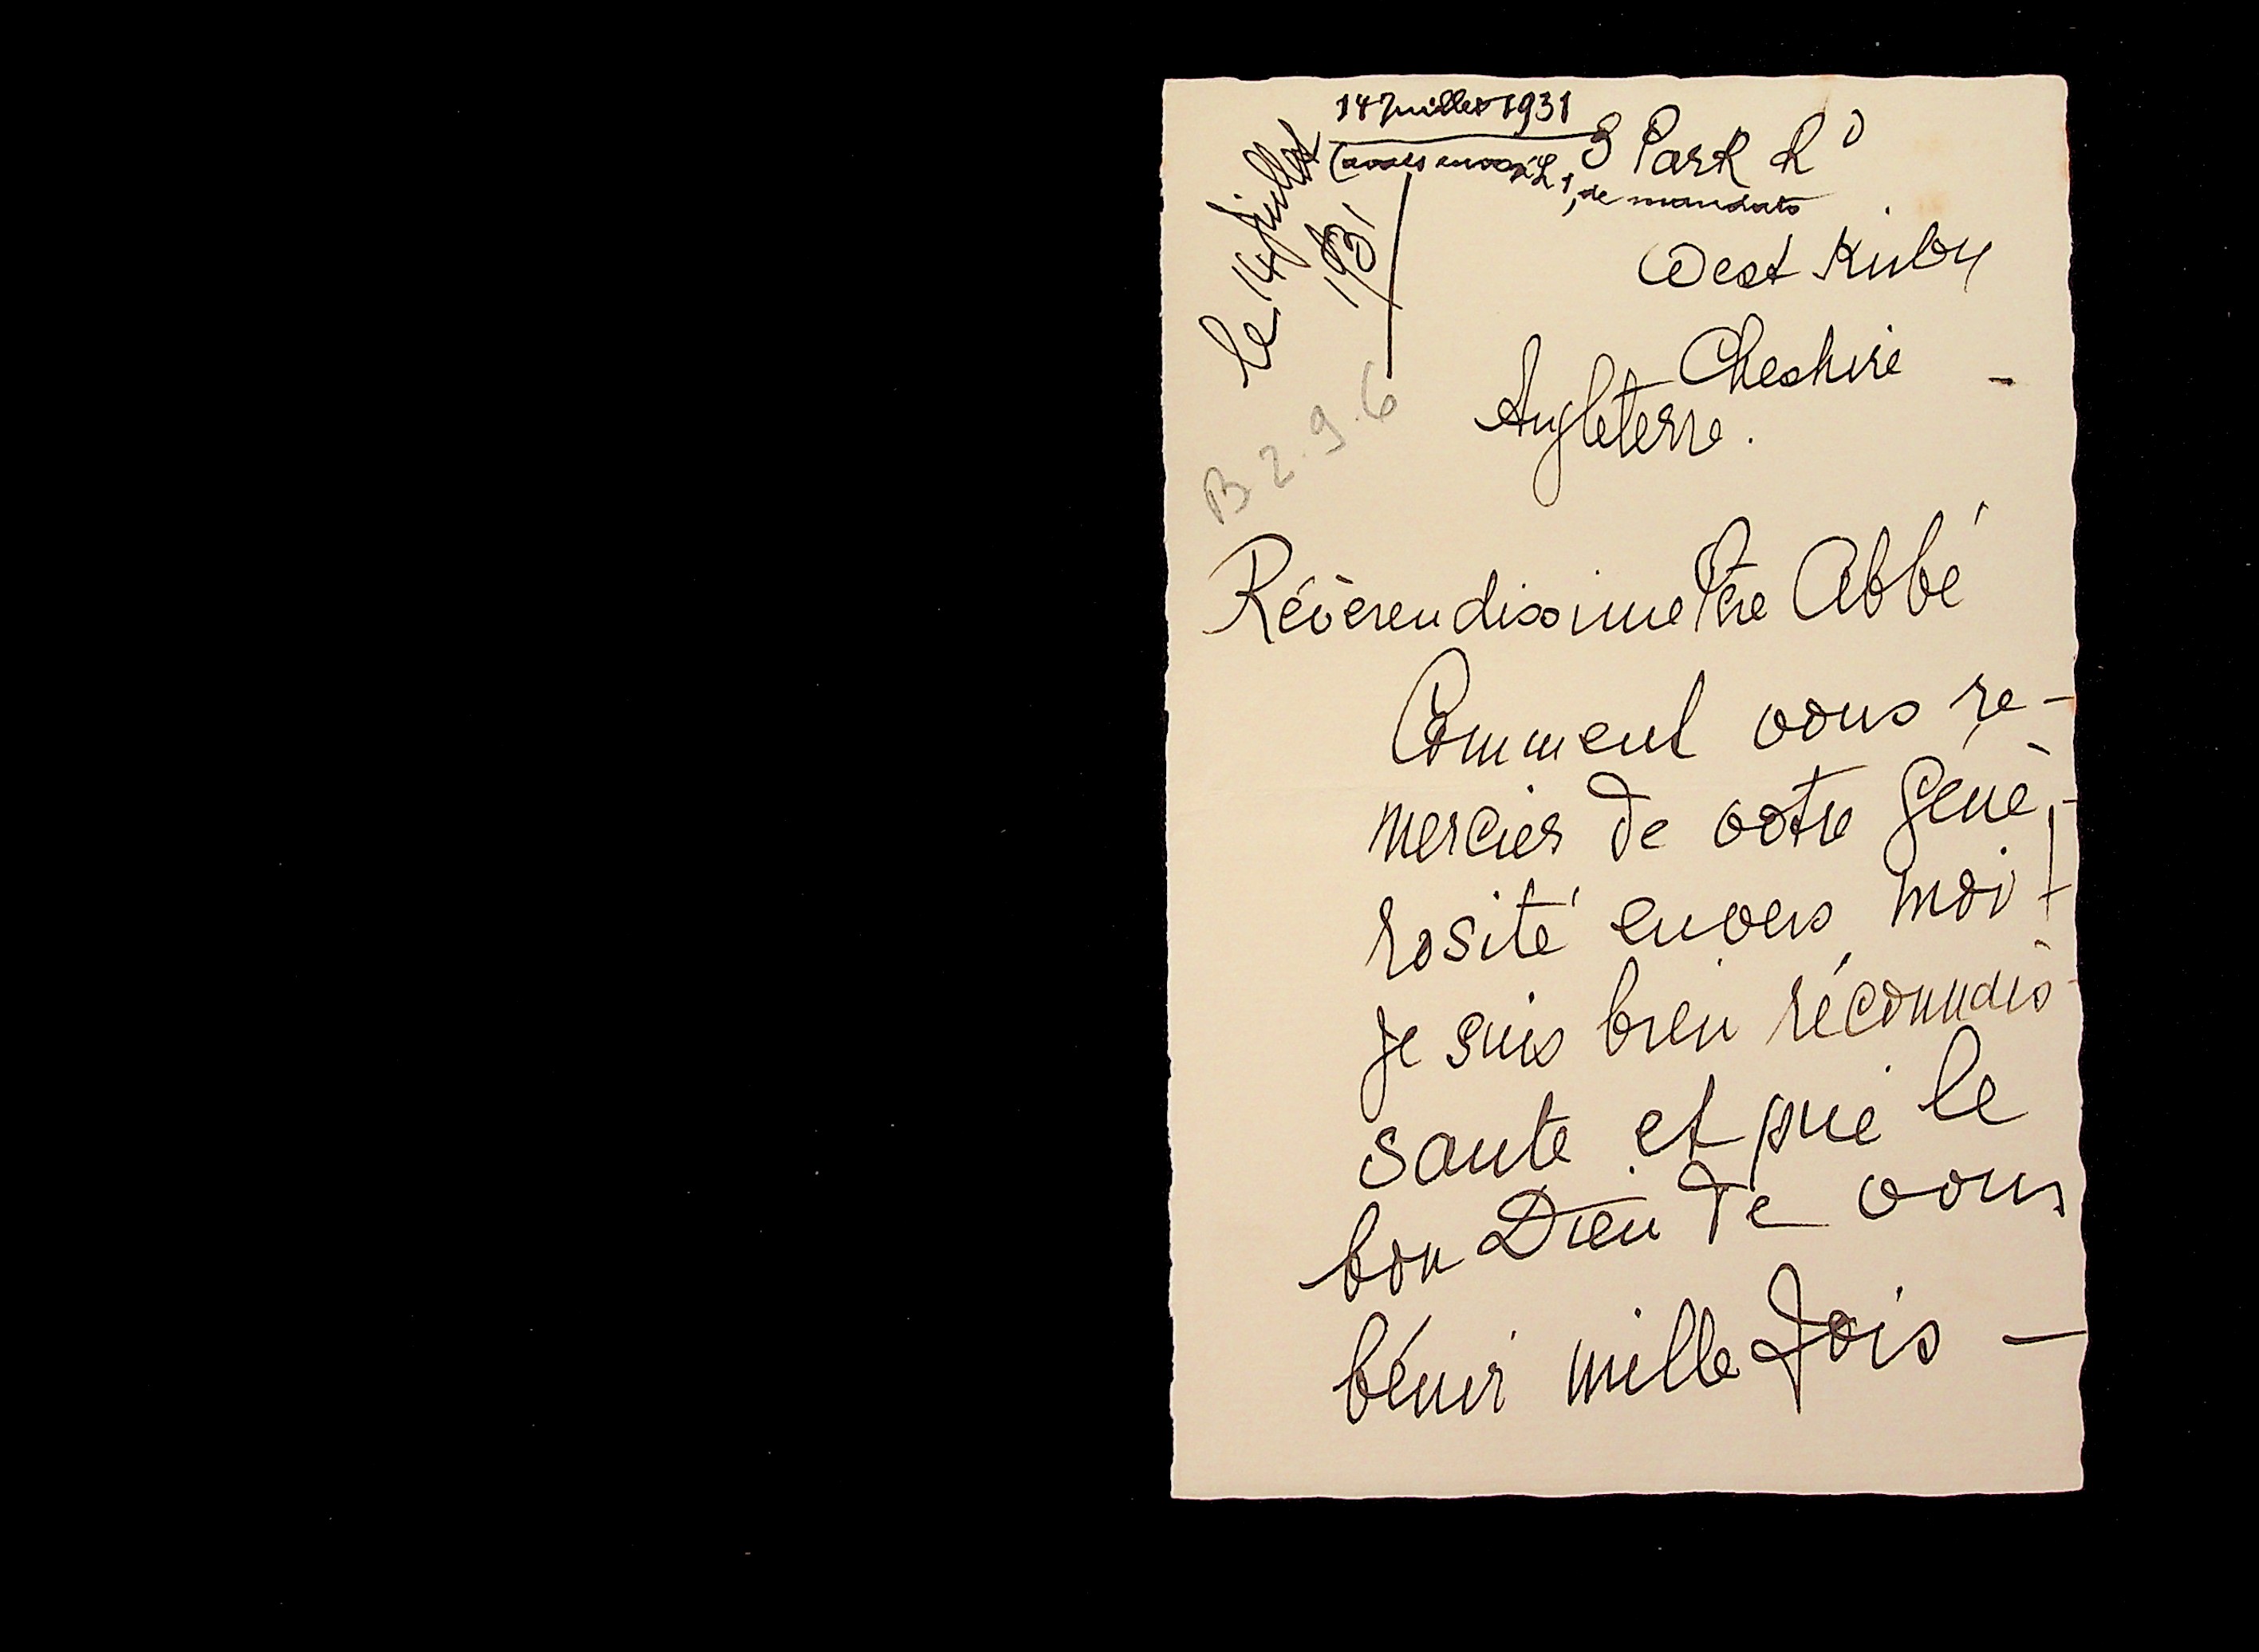 14 Juillet 1931
3 Park Rd
le 14 juillet
1931
de mandats
West Kirby
Cheshire -
Angleterre.
B 2.9.6
Révèrendissime Père Abbé
Comment vous re-
mercier de votre génè-
rosité envers moi!
je suis bien réconnais-
sante et prie le
bon Dieu de vous
bénir mille fois —